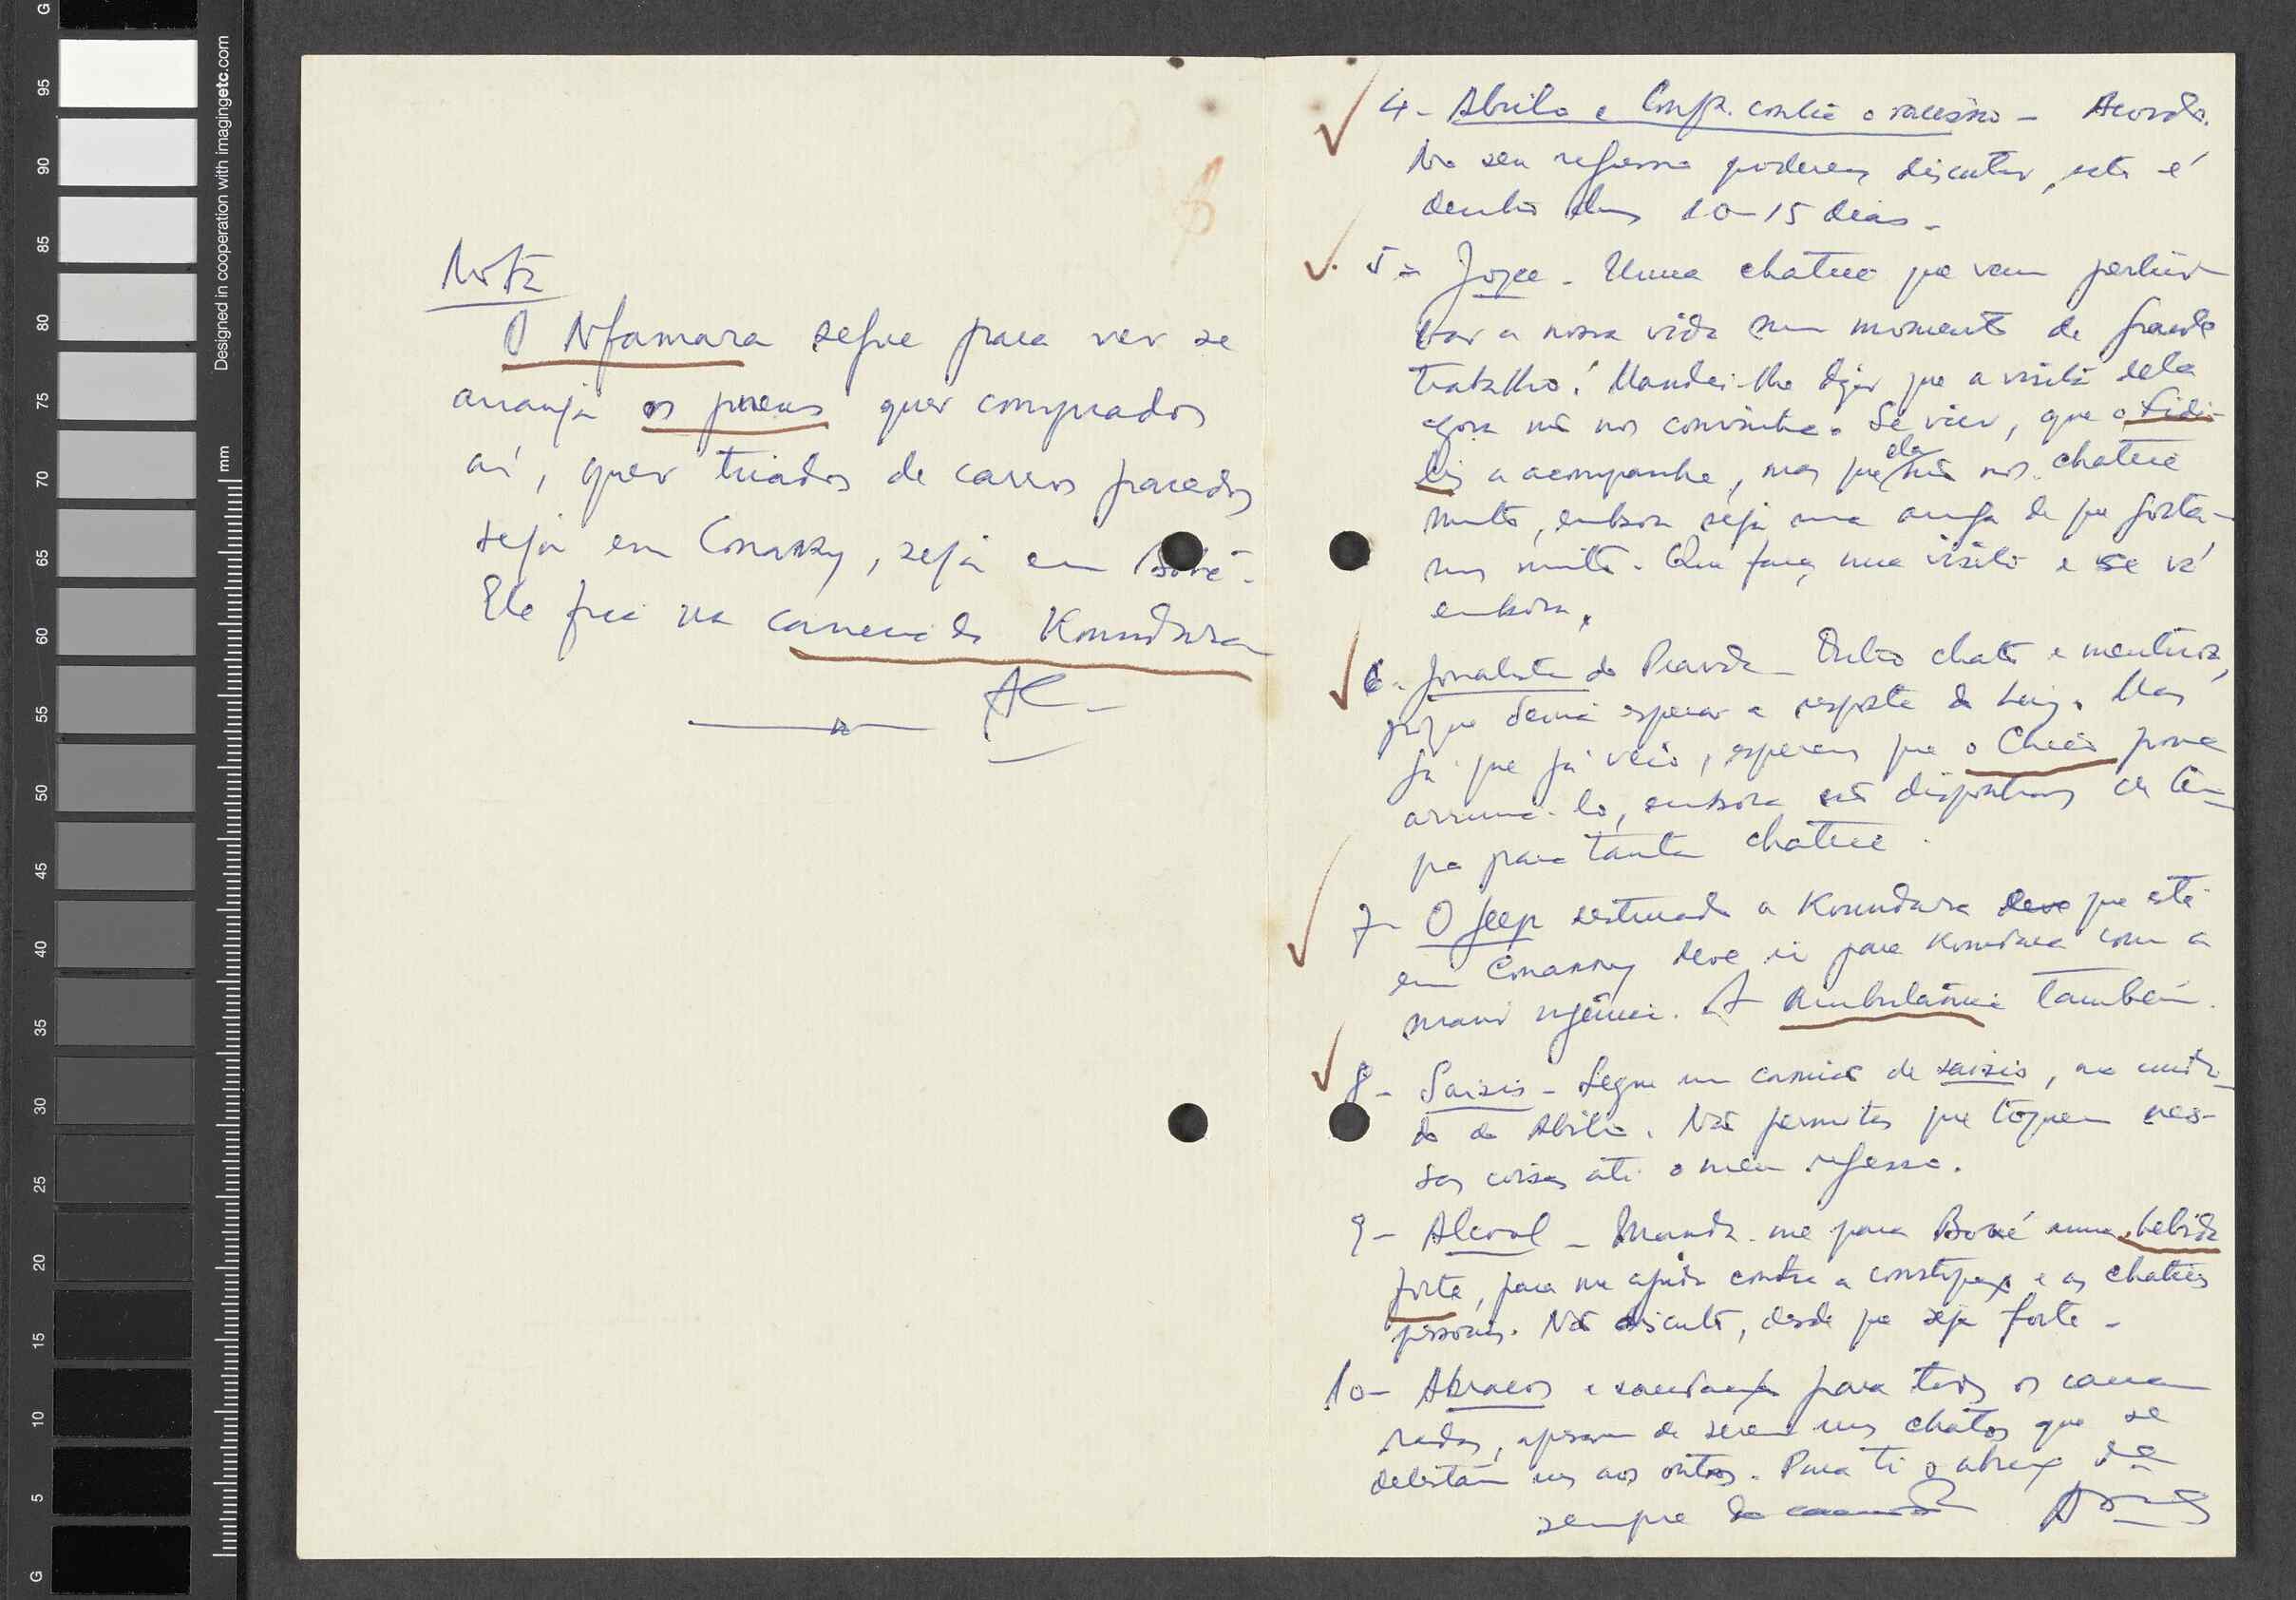 Nota
O Nfamara segue para ver se
arranja os pneus quer comprados
aí, quer tirados de carros parados
seja em Conakry, seja em Boké.
Ele fica na camarada Koundara
AC
4 - Abílio e Conf. contra o racismo - Acordo.
No seu regresso poderemos discutir, isto é
dentro duns 10-15 dias -
5 - Joyce - Uma chatice que vem pertur-
bar a nossa vida num momento de grande
trabalho! Mandei-lhe dizer que a visita dela
agora não nos convinha. Se vier, que o Fidé-
lis a acompanhe, mas que ela não nos chateie
muito, embora seja uma amiga de que gosta-
mos muito. Que faça uma visita e se vá
embora.
6 - Jornalista do Pravda - Outro chato e mentiroso,
porque devia esperar a resposta do Luiz. Mas
já que já veio, esperemos que o Chico possa
arrumá-lo, embora não disponhamos de tem-
po para tanta chatice.
7 - O Jeep destinado a Koundara deve que está
em Conakry deve ir para Koundara com a
maior urgência. A ambulância também.
8 - Saisis - Segue um camião de saisis, ao cuida-
do do Abílio. Não permitas que toquem nes-
sas coisas até o meu regresso.
9 - Alcool - Manda-me para Boké uma bebida
forte, para me ajudar contra a constipação e as chatices
pessoais. Não discuto, desde que seja forte -
10 - Abraços e saudações para todos os cama-
radas, apesar de serem uns chatos que se
detestam uns aos outros. Para ti o abraço de
sempre do